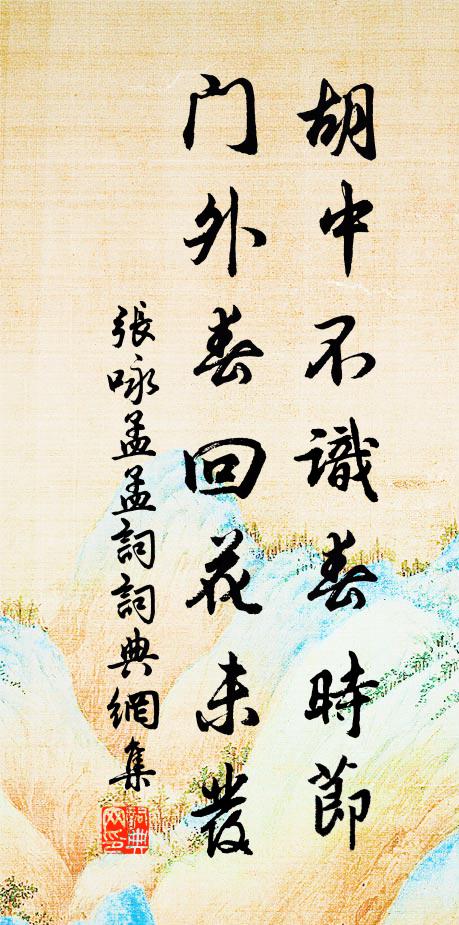 胡中不識春時節
门外春回花未發
張咏孟孟詞詞典網集
詞典
网印